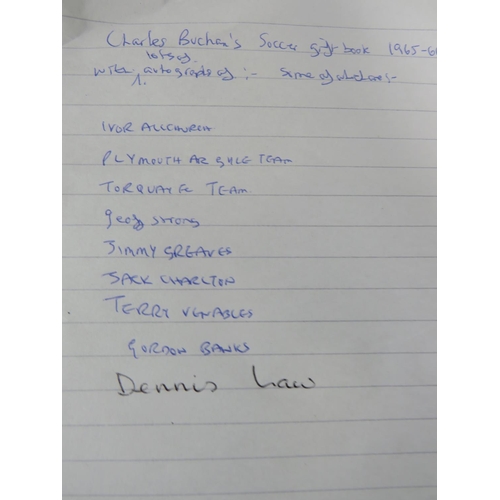 Charles Buchan's Soccer gift book 1965-6
lots of
with autografs of :- some of which are:-
1.
IVOR ALLCHURCH
PLYMOUTH ARGYLE TEAM
TORQUAY FC TEAM
Geoff strong
JIMMY GREAVES
JACK CHARLTON
TERRY VENABLES
GORDON BANKS
Dennis Law